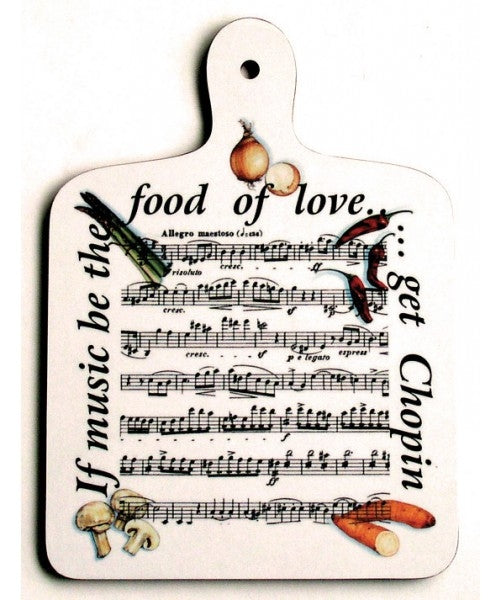 If music be the
food of love.....
get Chopin
Allegro maestoso
risoluto cresc. ff
cresc.
cresc. sf p e legato espress
sf
ff